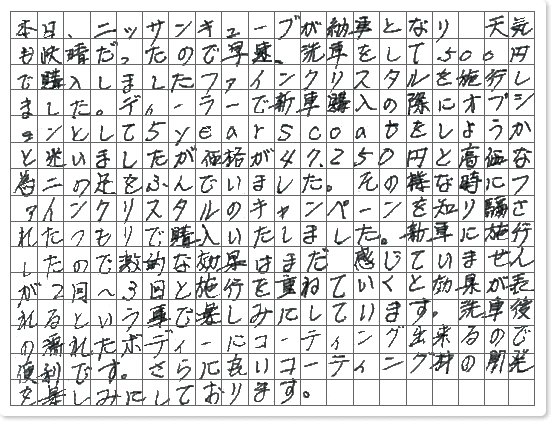 本日、ニッサンキューブが納車となり 天気
も快晴だったので早速、洗車をして500円
で購入しましたファインクリスタルを施行し
ました。ディーラーで新車購入の際にオプシ
ョンとして5yearscoatをしようか
と迷いましたが価格が47.250円と高価な
為二の足をふんでいました。その様な時にフ
ァインクリスタルのキャンペーンを知り騙さ
れたつもりで購入いたしました。新車に施行
したので劇的な効果はまだ 感じていません
が2回〜3回と施行を重ねていくと効果が表
れるという事で楽しみにしています。洗車後
の濡れたボディーにコーティング出来るので
便利です。さらに良いコーティング材の開発
を楽しみにしております。